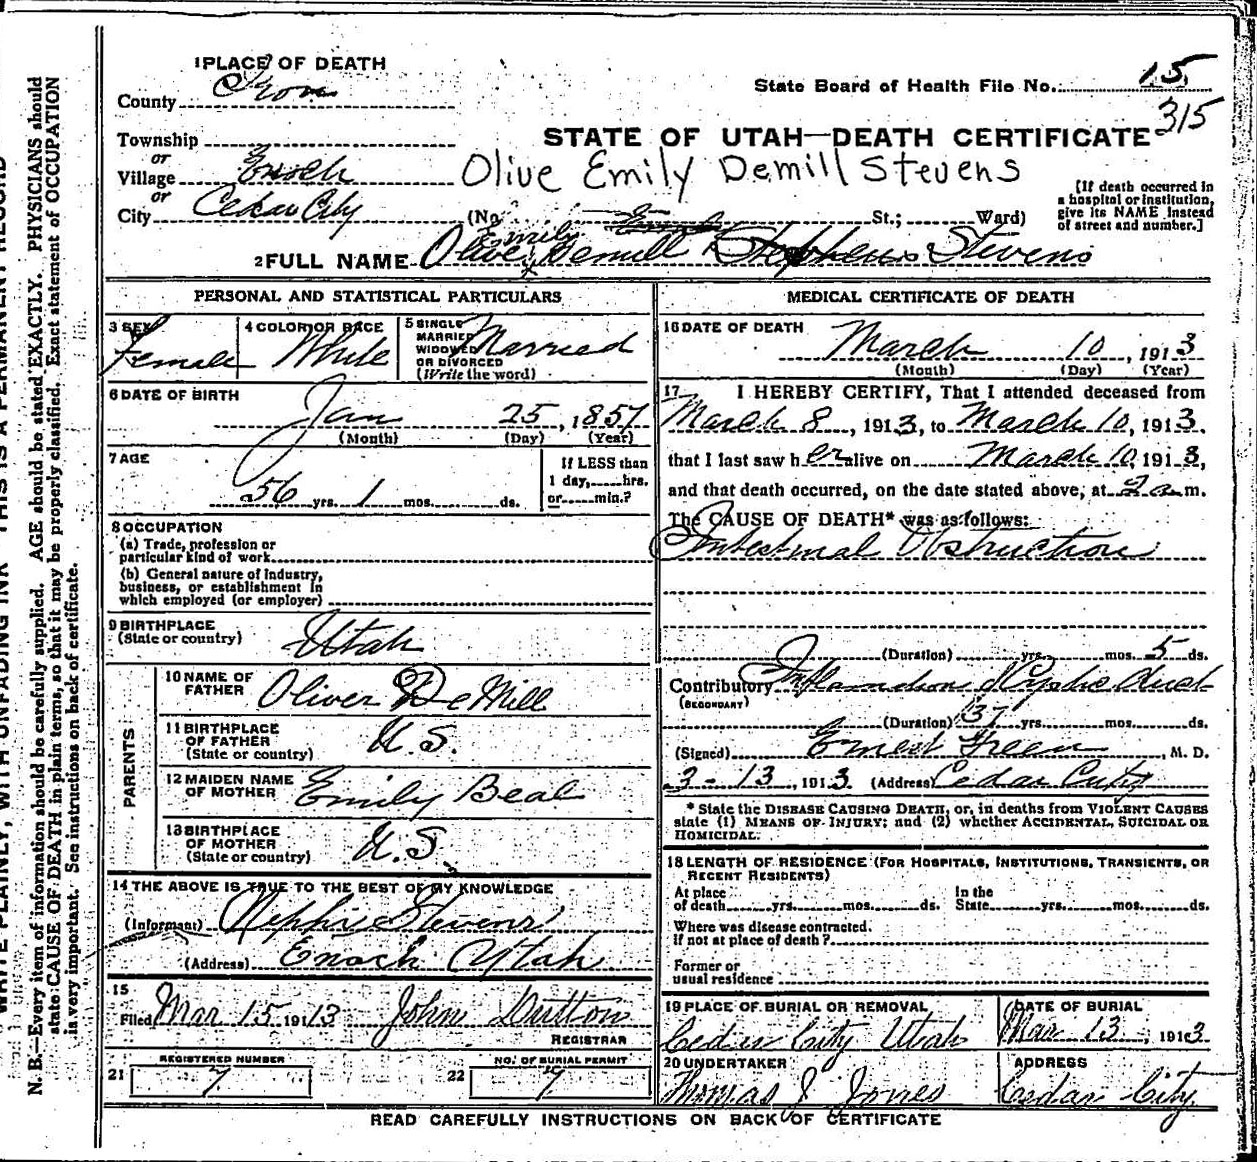 1 PLACE OF DEATH
County Iron
State Board of Health File No. 15
315
Township
or
Village Enoch
or
City Cedar City
STATE OF UTAH—DEATH CERTIFICATE
Olive Emily Demill Stevens
(No. St.; Ward)
[If death occurred in
a hospital or institution,
give its NAME instead
of street and number.]
Emily
2 FULL NAME Olive Demill Stephens Stevens
PERSONAL AND STATISTICAL PARTICULARS
3 SEX
Female
4 COLOR OR RACE
White
5 SINGLE
MARRIED
WIDOWED
OR DIVORCED
(Write the word)
Married
6 DATE OF BIRTH
Jan 25, 1857
(Month) (Day) (Year)
7 AGE
56 yrs. 1 mos. ds.
If LESS than
1 day, hrs.
or min.?
8 OCCUPATION
(a) Trade, profession or
particular kind of work
(b) General nature of Industry,
business, or establishment in
which employed (or employer)
9 BIRTHPLACE
(State or country)
Utah
PARENTS
10 NAME OF
FATHER
Oliver DeMill
11 BIRTHPLACE
OF FATHER
(State or country)
U.S.
12 MAIDEN NAME
OF MOTHER
Emily Beal
13 BIRTHPLACE
OF MOTHER
(State or country)
U.S.
14 THE ABOVE IS TRUE TO THE BEST OF MY KNOWLEDGE
(Informant) Nephi Stevens
(Address) Enoch Utah
15
Filed Mar 15 191 13 John Dutton
REGISTRAR
REGISTERED NUMBER
21 7
NO. OF BURIAL PERMIT
22 7
MEDICAL CERTIFICATE OF DEATH
16 DATE OF DEATH
March 10, 1913
(Month) (Day) (Year)
17 I HEREBY CERTIFY, That I attended deceased from
March 8, 1913, to March 10, 1913.
that I last saw her alive on March 10, 1913,
and that death occurred, on the date stated above, at 2 a m.
The CAUSE OF DEATH* was as follows:
Intestinal Obstruction
(Duration) yrs. mos. 5 ds.
Contributory Cystic Duct
(SECONDARY)
(Duration) yrs. mos. ds.
(Signed) Ernest Green, M. D.
3-13, 1913 (Address) Cedar City
* State the DISEASE CAUSING DEATH, or, in deaths from VIOLENT CAUSES
state (1) MEANS OF INJURY; and (2) whether ACCIDENTAL, SUICIDAL OR
HOMICIDAL.
18 LENGTH OF RESIDENCE (FOR HOSPITALS, INSTITUTIONS, TRANSIENTS, OR
RECENT RESIDENTS)
At place
of death yrs. mos. ds.
In the
State yrs. mos. ds.
Where was disease contracted.
If not at place of death?
Former or
usual residence
19 PLACE OF BURIAL OR REMOVAL
Cedar City Utah
DATE OF BURIAL
Mar 13, 1913
20 UNDERTAKER
Thomas J Jones
ADDRESS
Cedar City
READ CAREFULLY INSTRUCTIONS ON BACK OF CERTIFICATE
N. B.—Every item of information should be carefully supplied. AGE should be stated EXACTLY. PHYSICIANS should
state CAUSE OF DEATH in plain terms, so that it may be properly classified. Exact statement of OCCUPATION
is very important. See instructions on back of certificate.